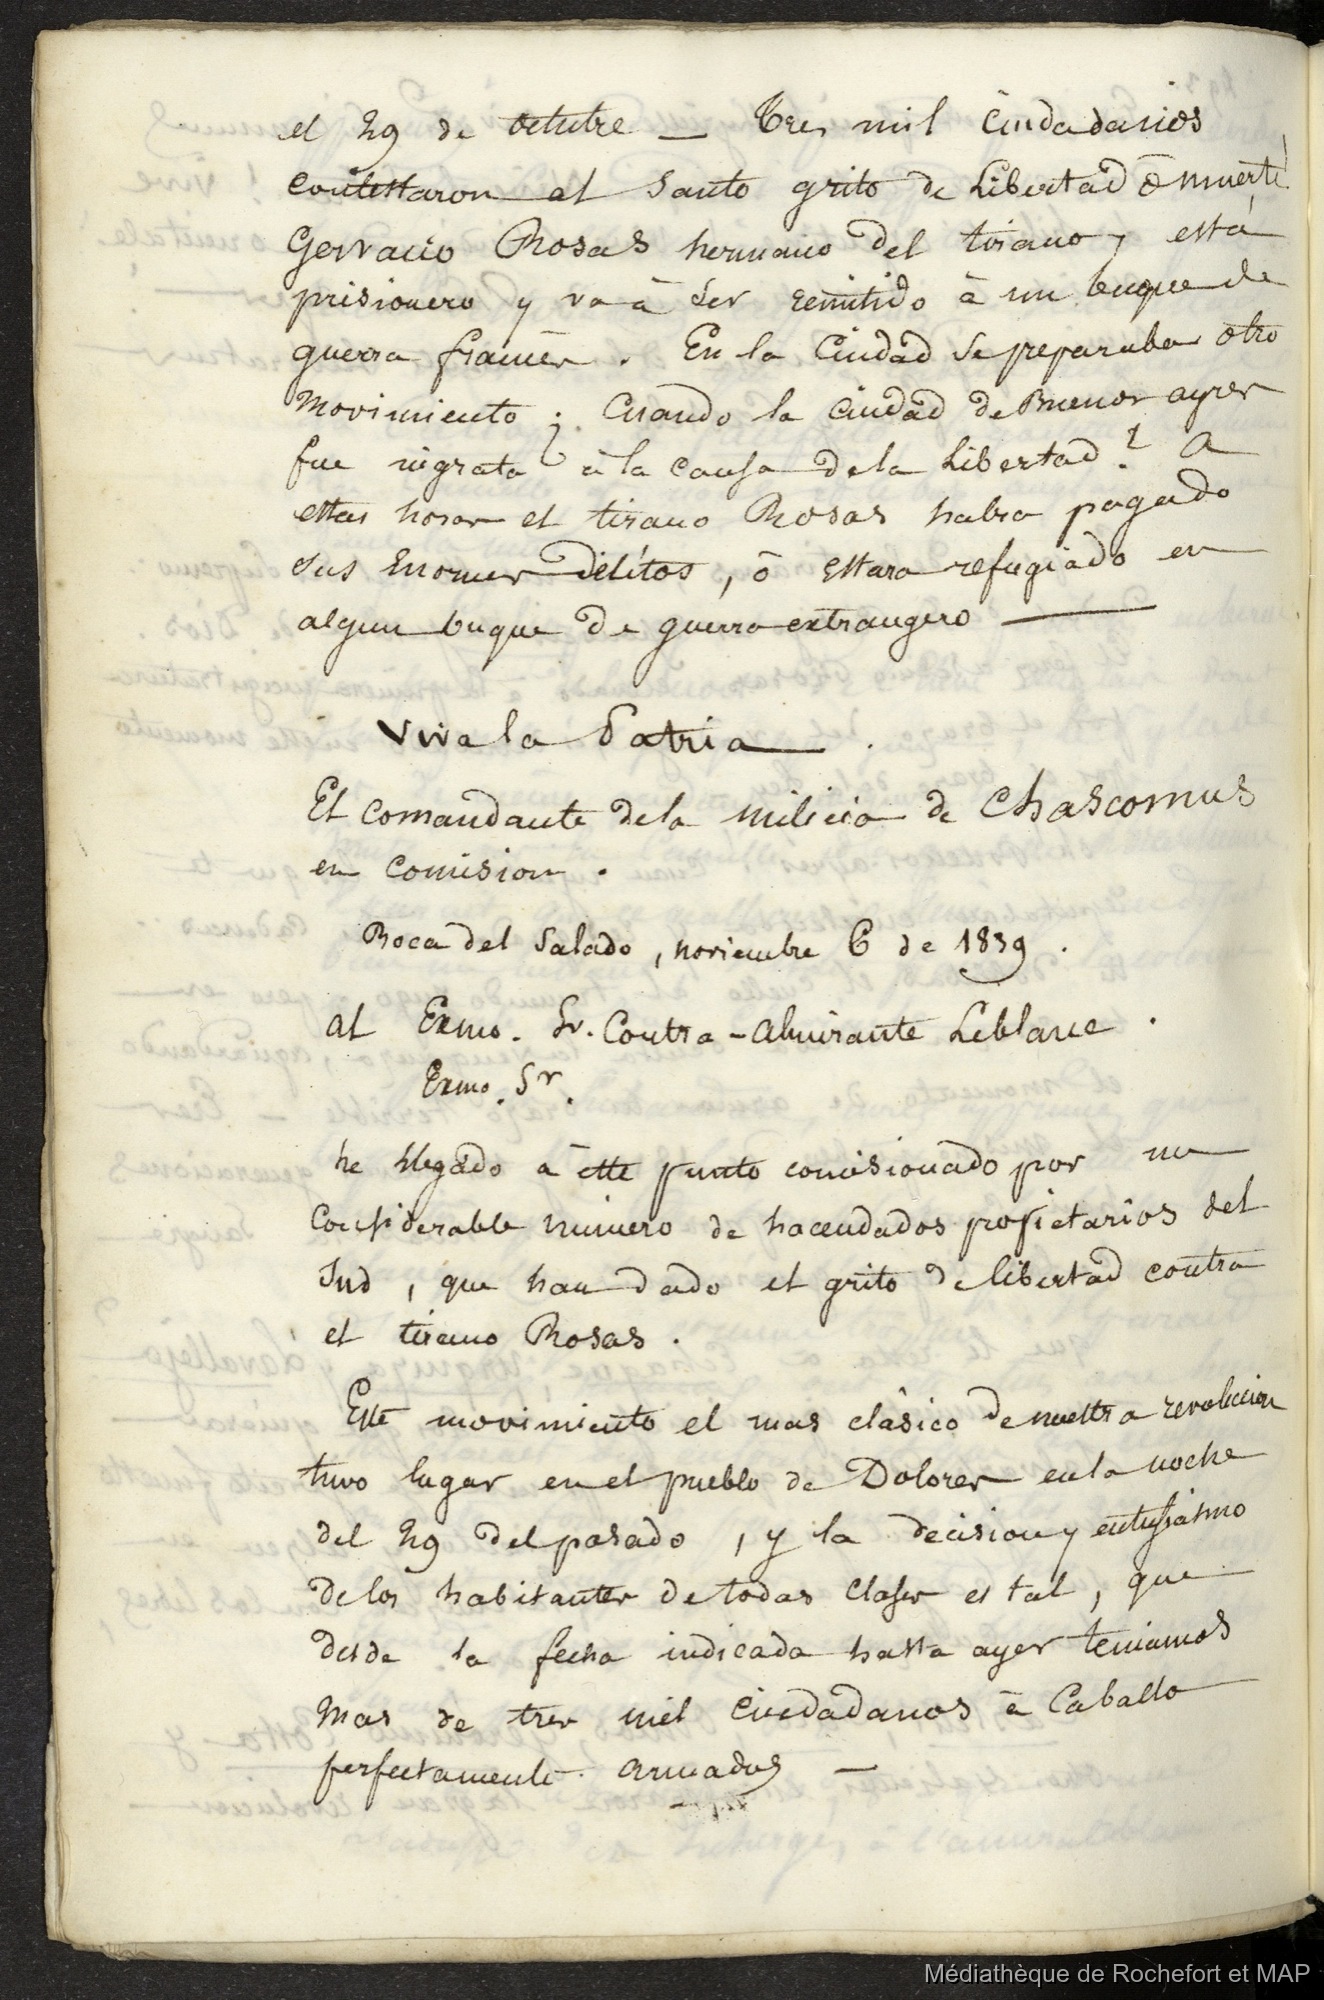 el 29 de octubre — Tres mil Ciudadanos
contestaron al Santo grito de Libertad ō muerte!
Gervacio Rosas hermano del tirano, está
prisionero y va à ser remitido à un buque de
guerra frances. En la Ciudad se preparaba otro
movimiento; Cuando la ciudad de Buenos ayres
fue ingrata à la causa de la Libertad? A
estas horas el tirano Rosas habra pagado
sus enormes delitos, ō estara refugiado en
algun buque de guerra extrangero —
Viva la Patria.
El Comandante de la milicia de Chascomus
en Comision.
Boca del Salado, noviembre 6 de 1839.
al Exmo. Sr. Contra-almirante Leblanc.
Exmo. Sr.
he llegado à este punto comisionado por un
Considerable numero de hacendados propietarios del
Sud, que han dado el grito de libertad contra
el tirano Rosas.
Este movimiento el mas clàsico de nuestra revolucion
tuvo lugar en el pueblo de Dolores en la noche
del 29 del pasado, y la decision y entusiasmo
de los habitantes de todas clases es tal, que
desde la fecha indicada hasta ayer teniamos
mas de tres mil Ciudadanos à Caballo
perfectamente armados —
Médiathèque de Rochefort et MAP